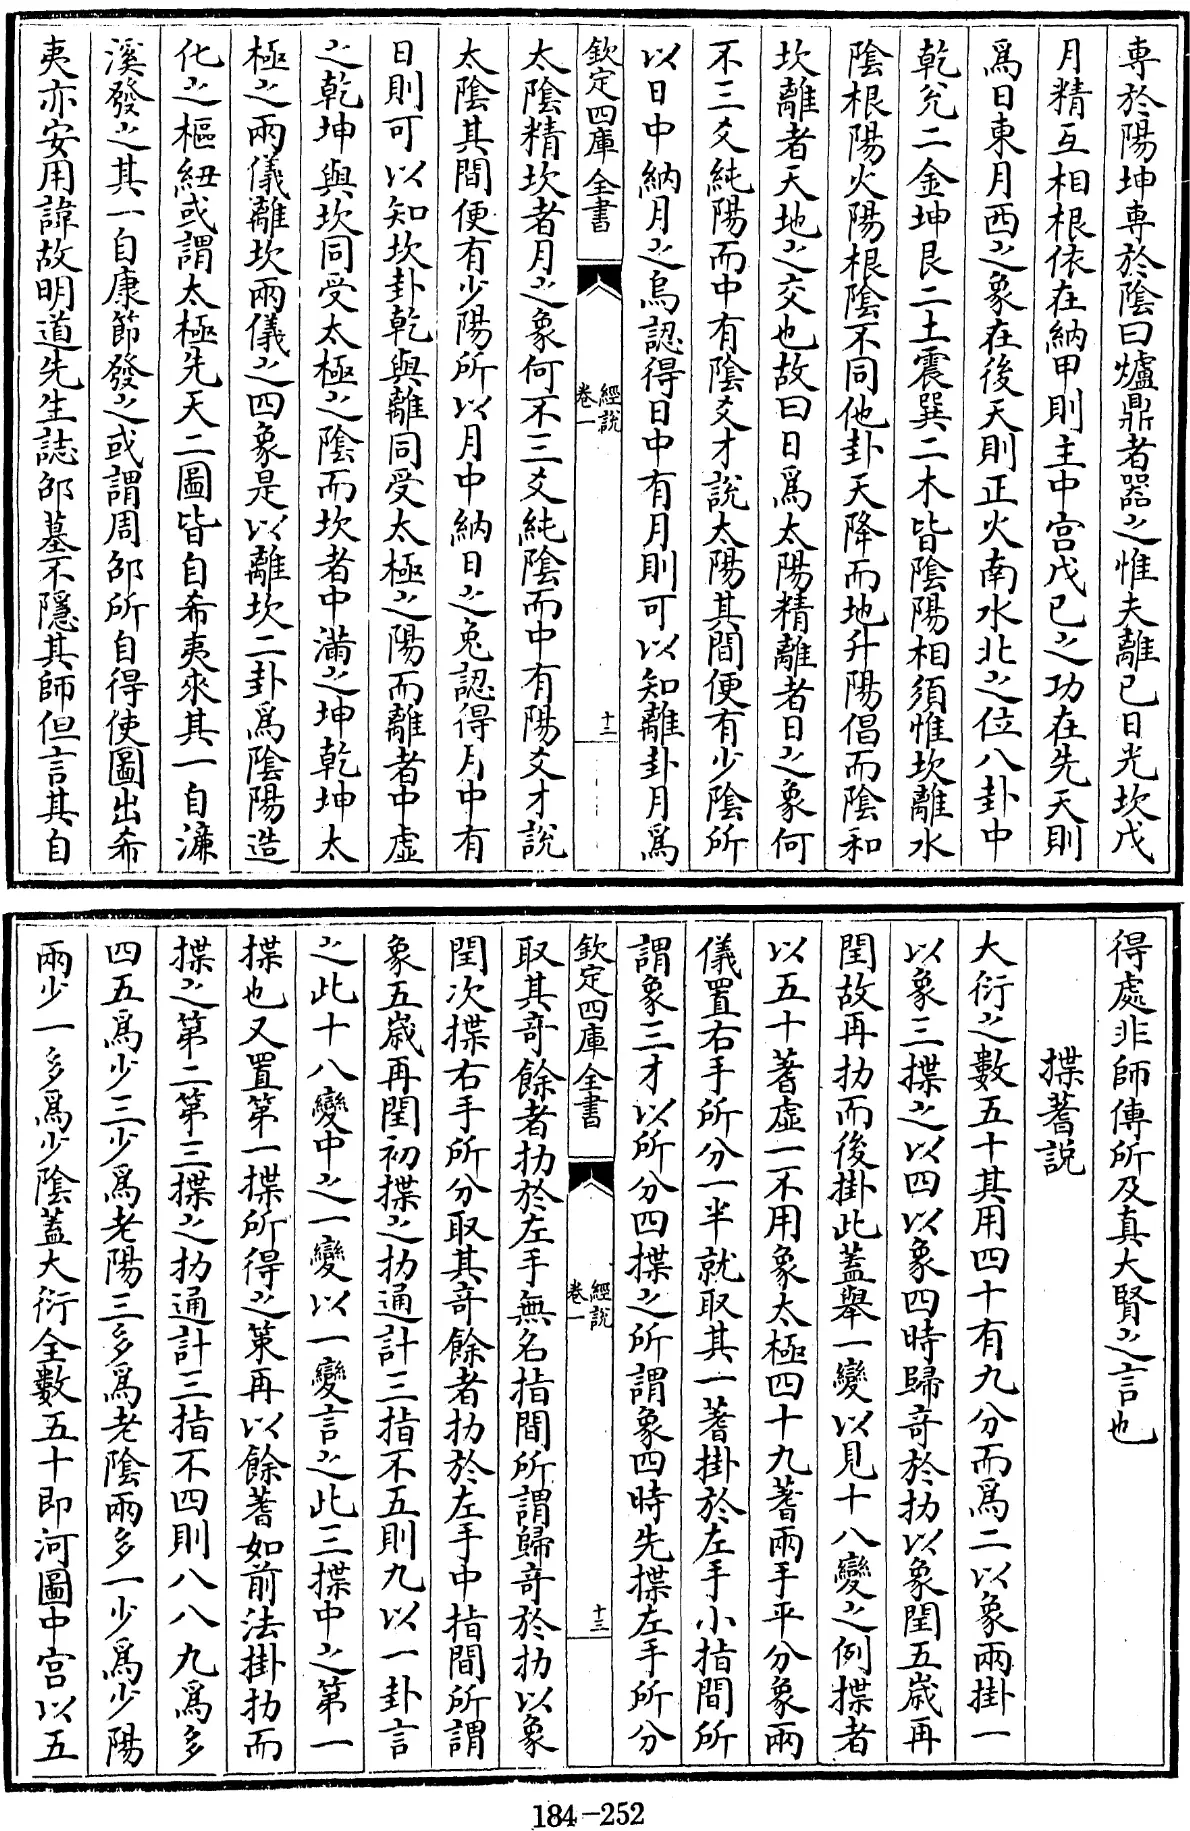 専於陽坤専於陰曰爐鼎者器之惟夫離已日光坎戊
月精互相根依在納甲則主中宫戊已之功在先天則
爲日東月西之象在後天則正火南水北之位八卦中
乾兊二金坤艮二土震巽二木皆陰陽相須惟坎離水
陰根陽火陽根陰不同他卦天降而地升陽倡而陰和
坎離者天地之交也故曰日爲太陽精離者日之象何
不三爻純陽而中有陰爻才說太陽其間便有少陰所
以日中納月之烏認得日中有月則可以知離卦月爲
欽定四庫全書
經說
卷一
十二
太陰精坎者月之象何不三爻純陰而中有陽爻才說
太陰其間便有少陽所以月中納日之兔認得月中有
日則可以知坎卦乾與離同受太極之陽而離者中虛
之乾坤與坎同受太極之陰而坎者中滿之坤乾坤太
極之兩儀離坎兩儀之四象是以離坎二卦爲陰陽造
化之樞紐或謂太極先天二圖皆自希夷來其一自濓
溪發之其一自康節發之或謂周邵所自得使圖出希
夷亦安用諱故明道先生誌邵墓不隱其師但言其自
得處非師傳所及真大賢之言也
揲蓍說
大衍之數五十其用四十有九分而爲二以象兩掛一
以象三揲之以四以象四時歸奇於扐以象閏五歲再
閏故再扐而後掛此蓋舉一變以見十八變之例揲者
以五十蓍虛一不用象太極四十九蓍兩手平分象兩
儀置右手所分一半就取其一蓍掛於左手小指間所
謂象三才以所分四揲之所謂象四時先揲左手所分
欽定四庫全書
經說
卷一
十三
取其奇餘者扐於左手無名指間所謂歸奇於扐以象
閏次揲右手所分取其奇餘者扐於左手中指間所謂
象五歲再閏初揲之扐通計三指不五則九以一卦言
之此十八變中之一變以一變言之此三揲中之第一
揲也又置第一揲所得之策再以餘蓍如前法掛扐而
揲之第二第三揲之扐通計三指不四則八八九爲多
四五爲少三少爲老陽三多爲老陰兩多一少爲少陽
兩少一多爲少陰蓋大衍全數五十即河圖中宫以五
184-252